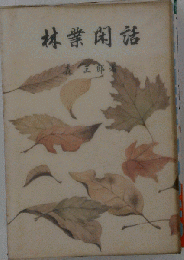 林業閑話
三郎著